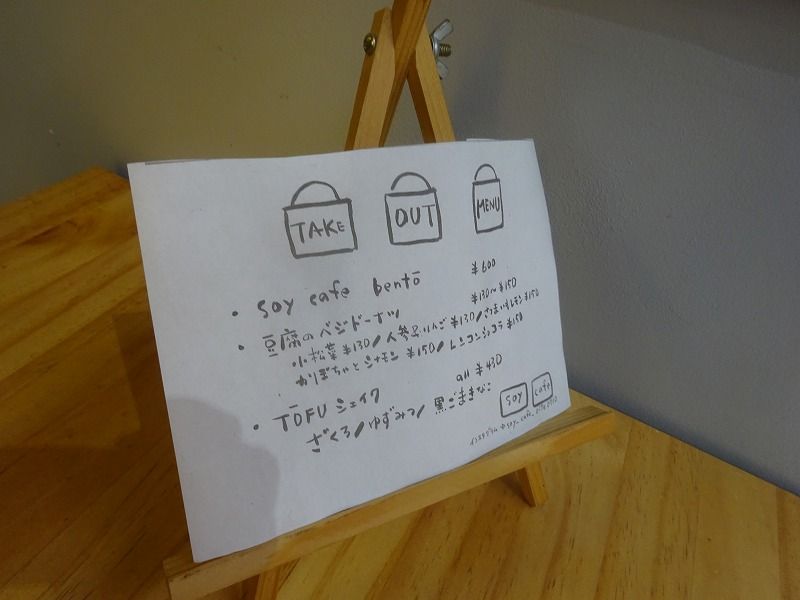 TAKE OUT MENU
• soy cafe bentō ¥600
• 豆腐のベジドーナツ ¥130〜¥150
小松菜 ¥130/人参&りんご ¥130/さつまいもレモン ¥150
かぼちゃとシナモン ¥150/レンコンショコラ ¥150
• TŌFU シェイク all ¥430
ざくろ/ゆずみつ/黒ごまきなこ
soy cafe
インスタグラム